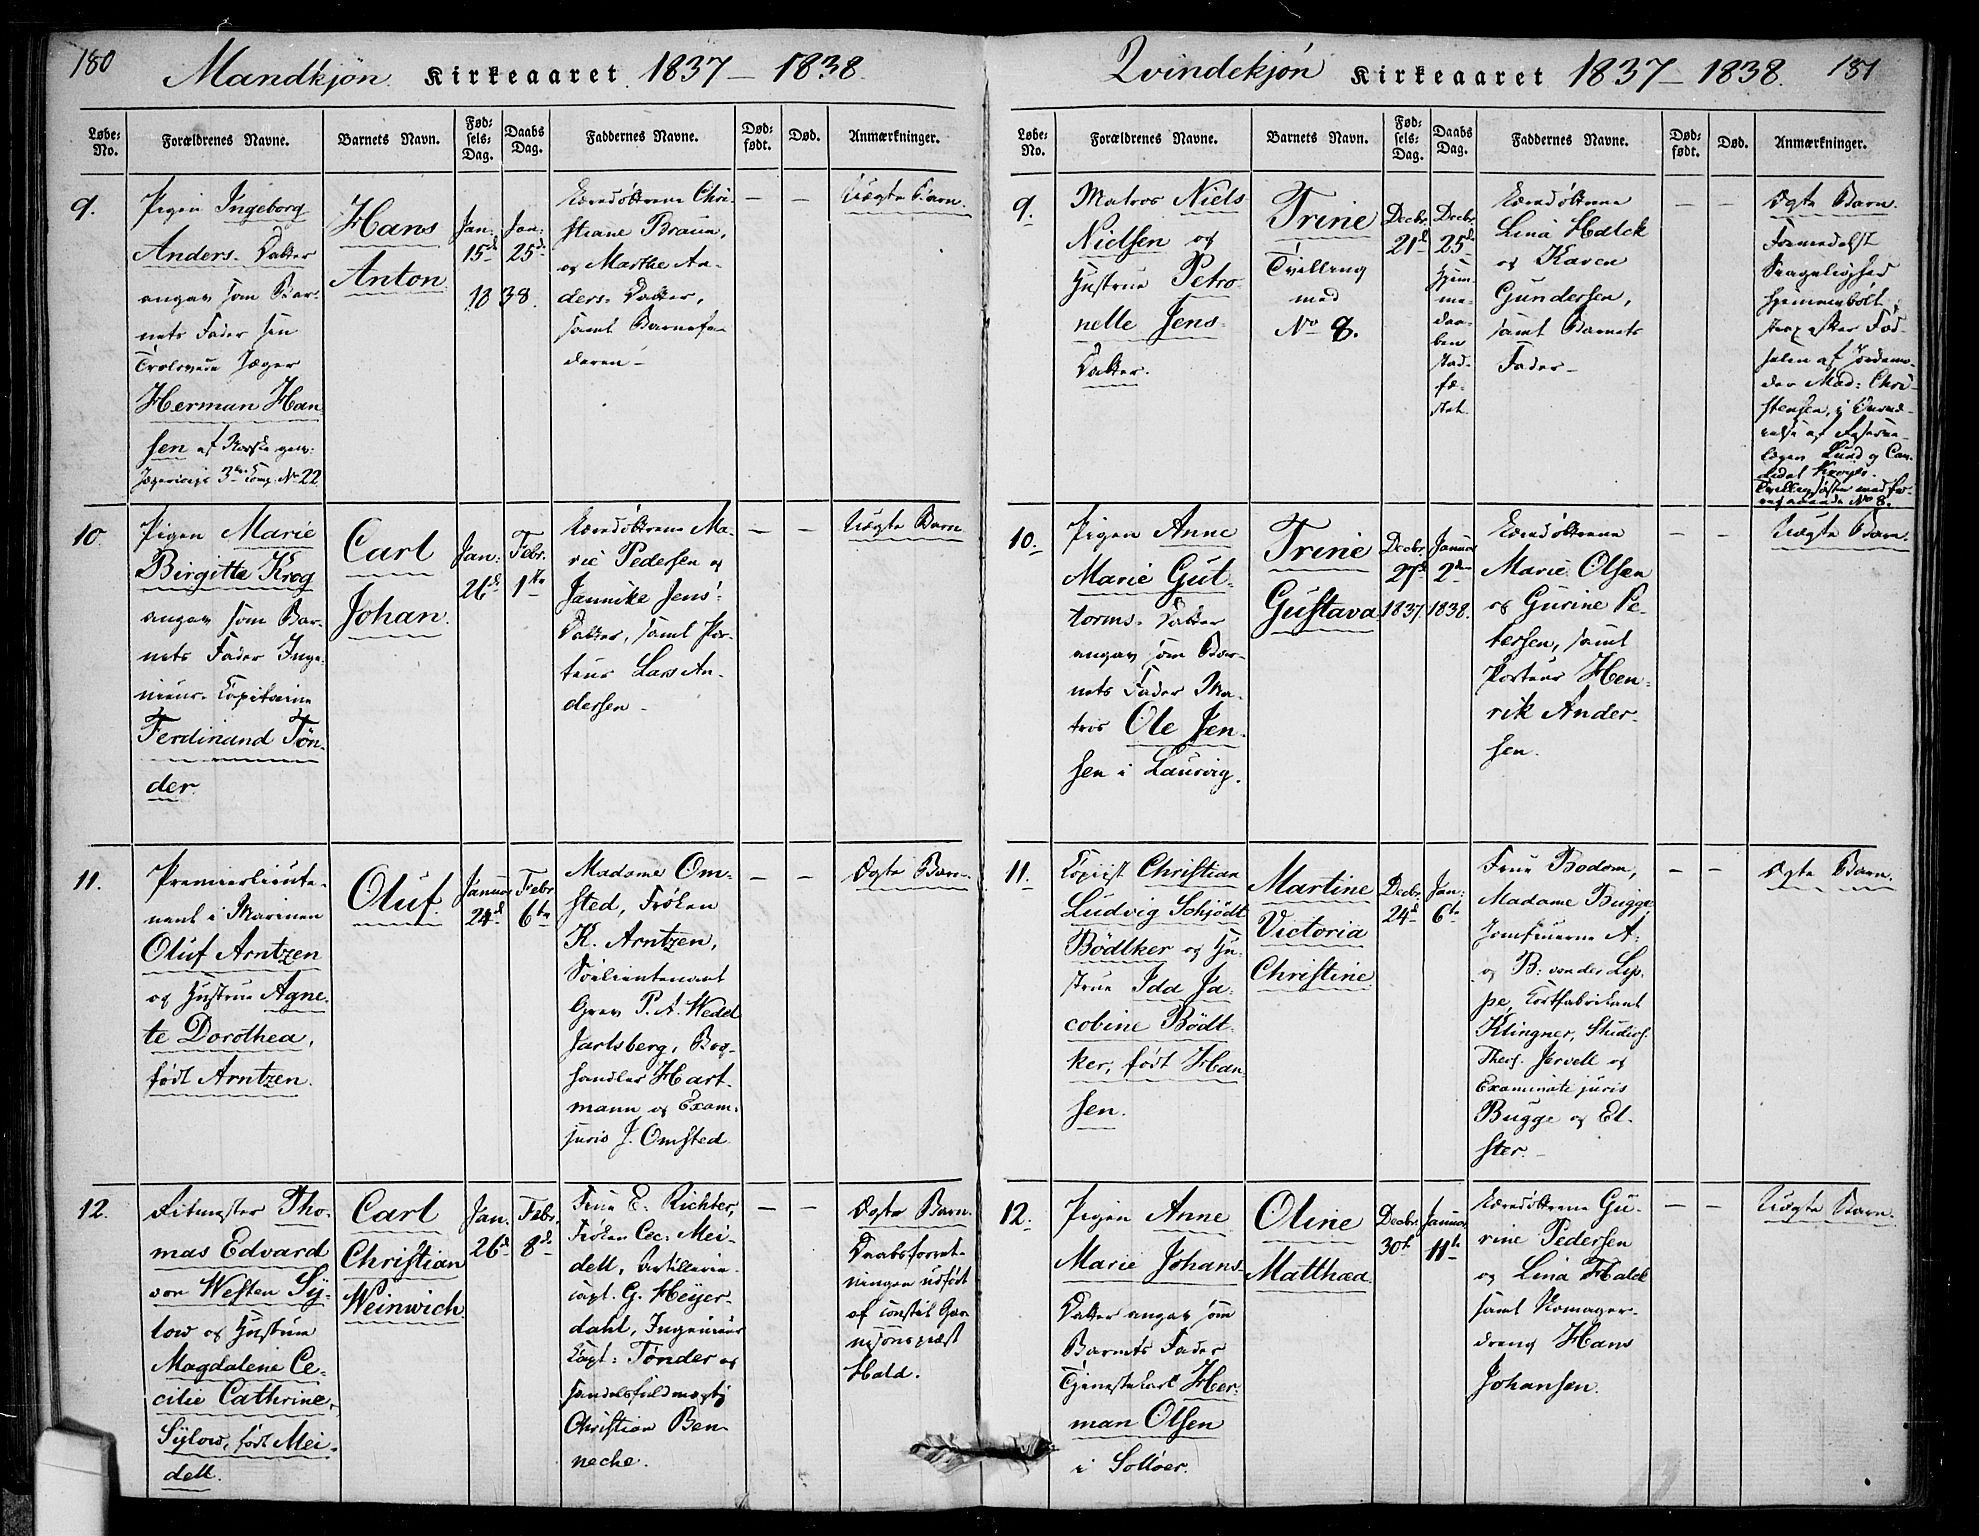 180
Mandkjøn. Kirkeaaret 1837 – 1838.
Løbe: No.
Forældrenes Navne.
Barnets Navn.
Fød: sels: Dag.
Daabs Dag.
Faddernes Navne.
Død: født.
Død.
Anmærkninger.
9.
Pigen Ingeborg
Anders. Datter
angav som Bar-
nets Fader
Jæger
Herman Han
sen af Norske
3die Comp. No 22
Hans
Anton
Jan:
15d
Jan:
25d
1838.
Christiane Braun,
og Marthe An-
ders. Datter,
samt Barnefa-
deren –
– –
Uægte Barn.
10.
Pigen Marie
Birgitte Krog
angav som Bar-
nets Fader Inge-
nieur. Capitaine
Ferdinand Tøn-
der.
Carl
Johan.
Jan:
26d
Febr.
1ste
Ma-
rie Pedersen og
Jannike Jens-
Datter, samt Por-
teur Lars An-
dersen –
– –
Uægte Barn
11.
Premierlieute-
nant i Marinen
Oluf Arntzen
og Hustrue Agne-
te Dorothea,
født Arntzen.
Oluf.
Januar
24d
Febr
6te
Madame Om-
sted, Frøken
K. Arntzen,
Søelieutenant
Grev P. A. Wedel
Jarlsberg, Bog-
handler Hart-
mann og Exam:
juris J. Omsted
– –
Ægte Barn
12.
Ritmester Tho-
mas Edvard
von Westen Sy-
low og Hustrue
Magdalene Ce-
cilie Cathrine,
Sylow, født Mei-
dell.
Carl
Christian
Weinwich.
Jan.
26d
Febr.
8d
Frue E. Richter,
Frøken Cec: Mei-
dell, Artillerie-
capt. G. Heyer-
dahl, Ingenieur
Capt: Tønder og
Handelsfuldmægtig
Christian Ben-
neche.
– –
Ægte Barn.
Daabsforret-
ningen udført
af constit. Gar-
nisonspræst
Hald.
Qvindekjøn Kirkeaaret 1837 – 1838. 181
Løbe: No.
Forældrenes Navne.
Barnets Navn.
Fød: sels: Dag.
Daabs Dag.
Faddernes Navne.
Død: født.
Død.
Anmærkninger.
9.
Matros Niels
Nielsen og
Hustrue Petro
nelle Jens-
Datter.
Trine
Tvilling
med
No 8.
Decbr
21d
Decbr.
25d
Hjem-
me-
daa-
ben
stad-
fæ-
stet.
Lina Halck
og Karen
Gundersen,
samt Barnets
Fader –
– –
Ægte Barn
Formedelst
Svagelighed
hjemmedøbt
strax efter Fød-
selen af Jordemo-
der Mad: Chri-
stensen, i
Lund og Can-
didat
No 8.
10.
Pigen Anne
Marie Gut-
torms. Datter
angav som Bar-
nets Fader Ma-
tros Ole Jen-
sen i Laurvig.
Trine
Gustava
Decbr
27d
1837.
Januar
2den
1838.
Marie Olsen
og Gurine Pe-
tersen, samt
Porteur Hen-
rik Ander-
sen.
– –
Uægte Barn.
11.
Copist Christian
Ludvig Schjødt
Bødtker og Hu-
strue Ida Ja-
cobine Bødt-
ker, født Han
sen.
Martine
Victoria
Christine
Decbr.
24d
Jan:
6te
Frue Bodom,
Madame Bugge
Jomfruerne A.
og B. von der Lip-
pe, Cortfabrikant
Klingner, Studios.
Theol. Jervell og
Examinati juris
Bugge og El-
ster. –
– –
Ægte Barn.
12.
Pigen Anne
Marie Johans
Datter angav som
Barnets Fader
Tjenestekarl Her-
man Olsen
i Solløer.
Oline
Matthæa
Decbr
30te
Januar
11te
Gu-
rine Pedersen
og Lina Halck
samt Skomager-
dreng Hans
Johansen.
– –
Uægte Barn.